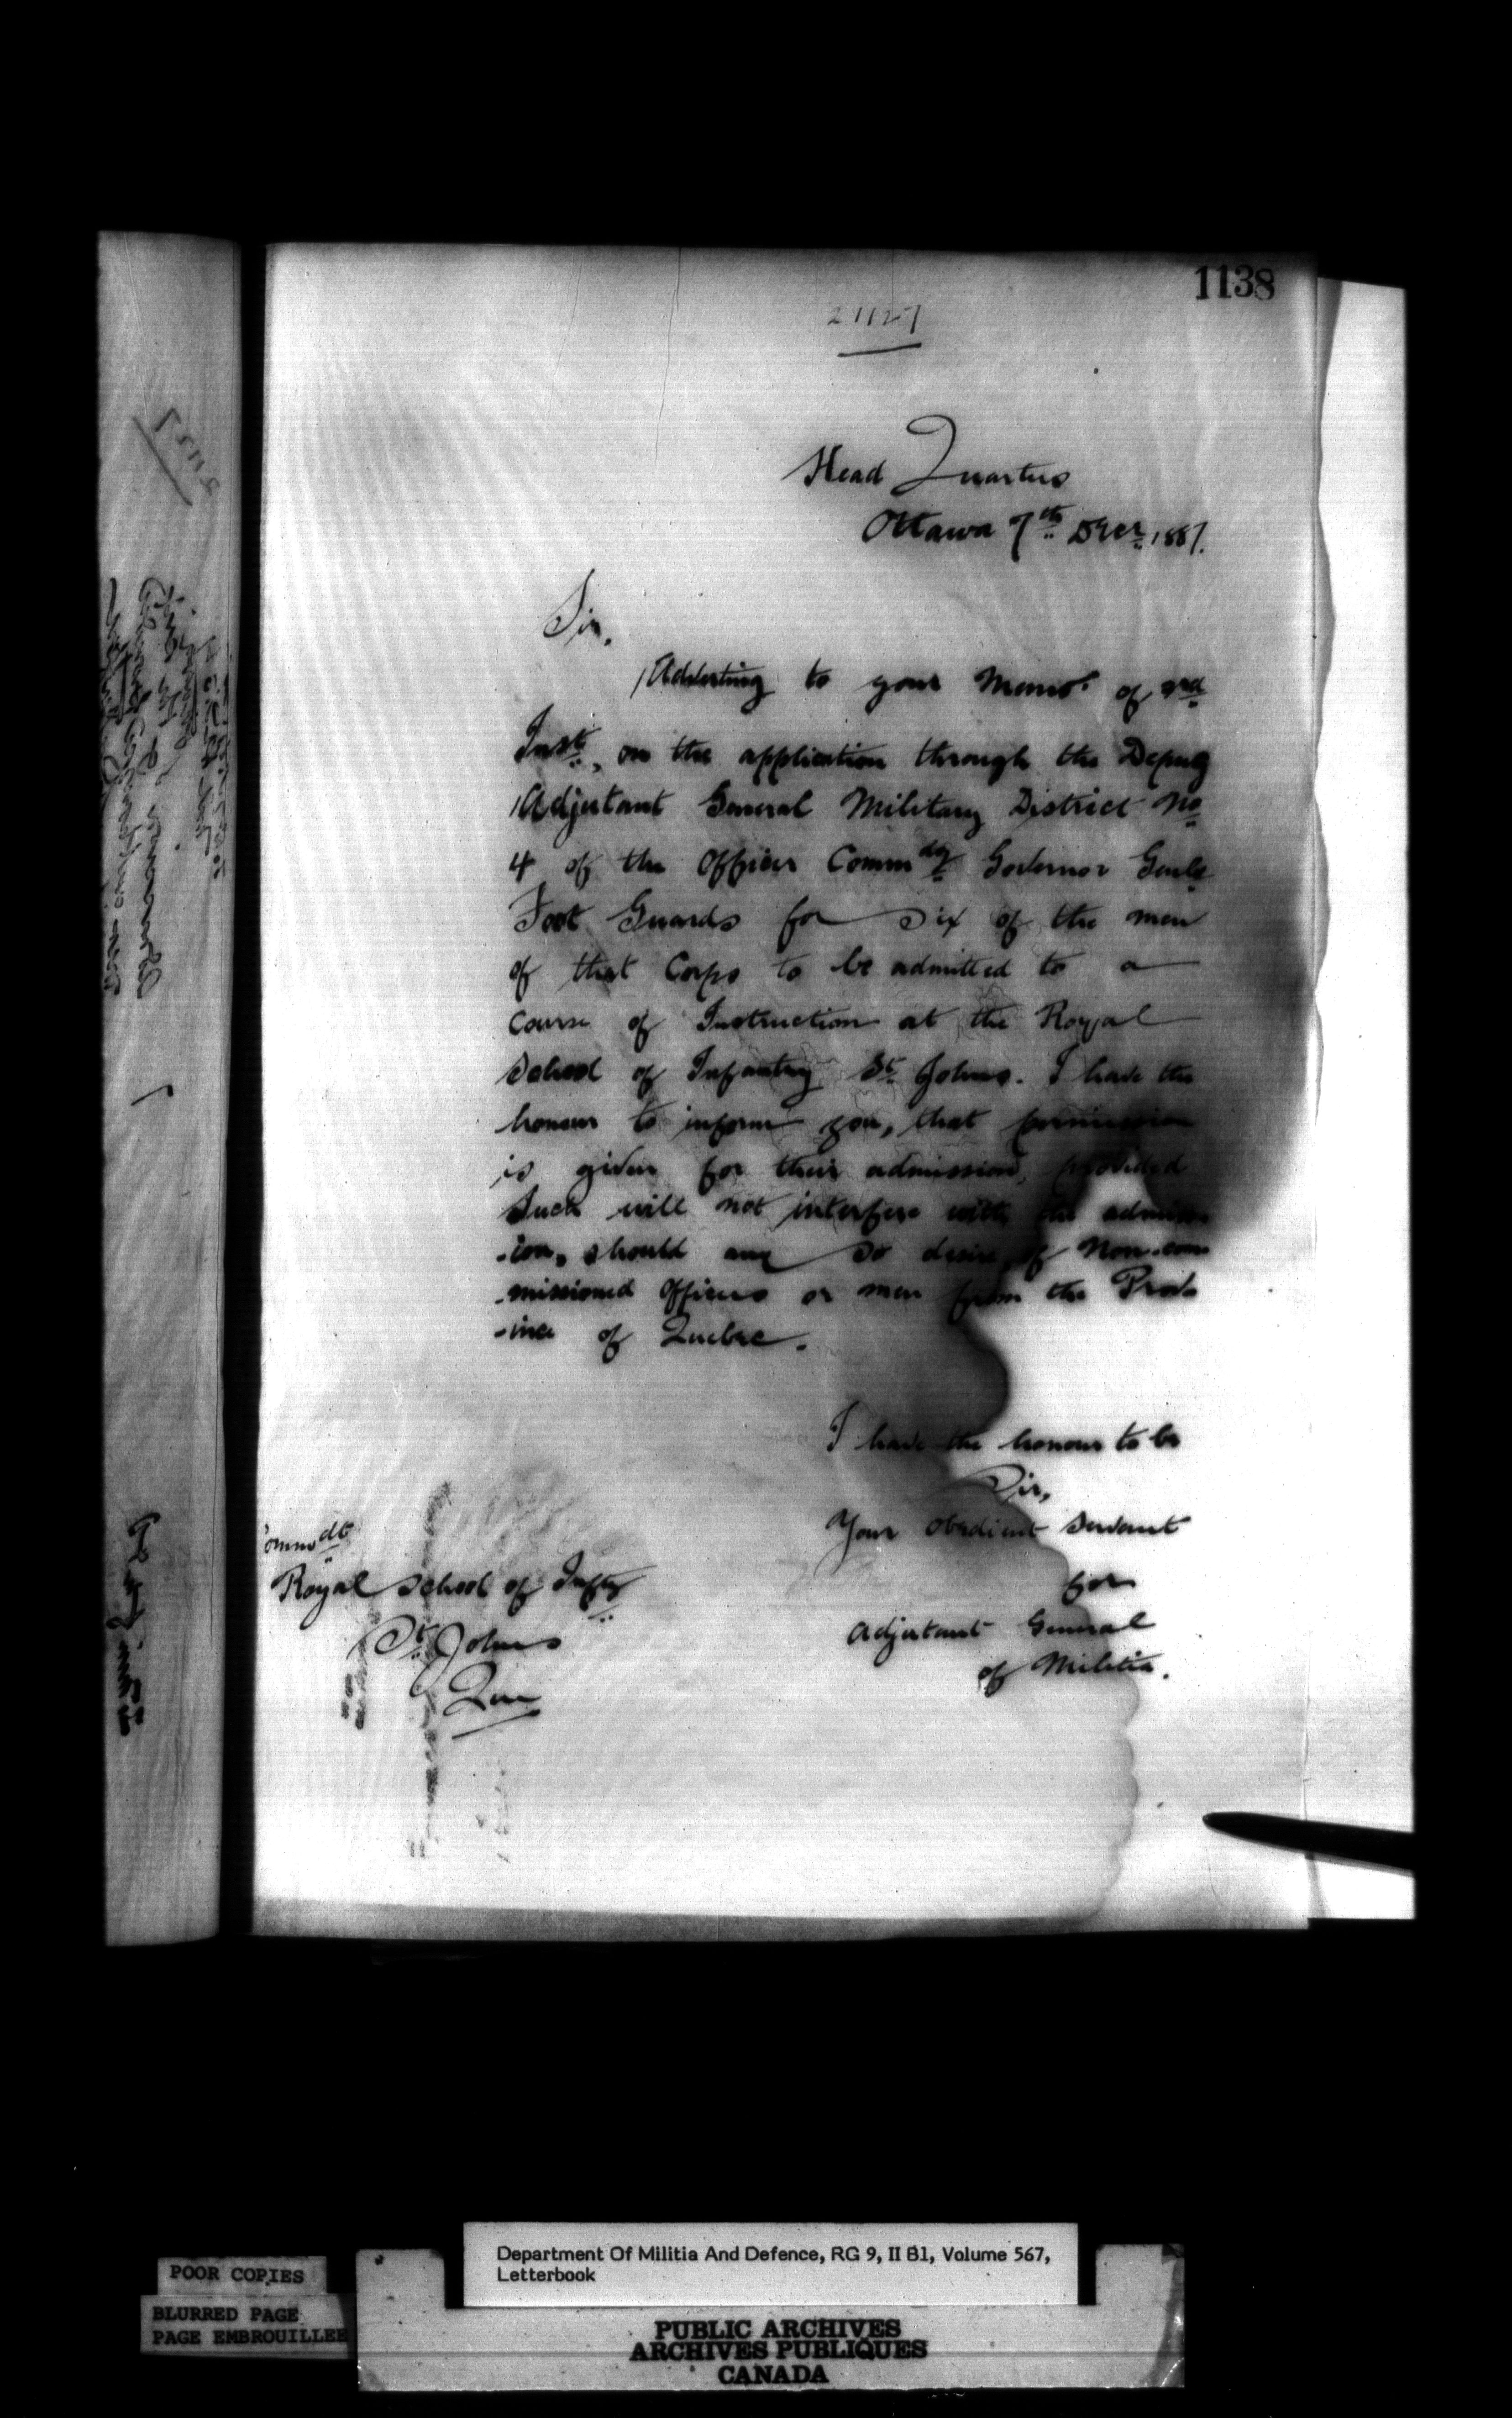 1138
21127
Head Quarters
Ottawa 7th Decr 1887.
Sir,
Adverting to your Memo. of 3rd
Inst., on the application through the Deputy
Adjutant General Military District No
4 of the Officer Commdg Governor Genls
Foot Guards for six of the men
of that Corps to be admitted to a
Course of Instruction at the Royal
School of Infantry St Johns. I have the
honour to inform you, that permission
is given for their admission, provided
such will not interfere with the admiss
-ion, should any so desire, of Non-com
-missioned Officers or men from the Prov
-ince of Quebec.
I have the honour to be
Sir,
Your obedient servant
for
Adjutant General
of Militia.
Commdt
Royal School of Infty
St Johns
Que
Department Of Militia And Defence, RG 9, II B1, Volume 567,
Letterbook
POOR COPIES
BLURRED PAGE
PAGE EMBROUILLEE
PUBLIC ARCHIVES
ARCHIVES PUBLIQUES
CANADA